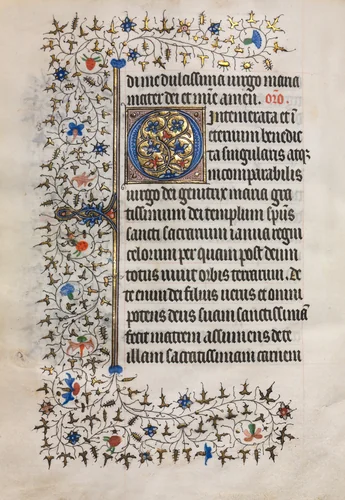 di me dulcissima uirgo maria
mater dei et mīe amen. oro.
O Intemerata et i
eternum benedic
ta singularis atq;
incomparabilis
uirgo dei genitrix maria gra
tissimum dei templum spūs
sancti sacrarium ianua regni
celorum per quam post deum
totus uiuit orbis terrarum. De
te enim dei filius uerus et omni
potens deus suam sanctissimā
fecit matrem assumens de te
illam sacratissimam carnem